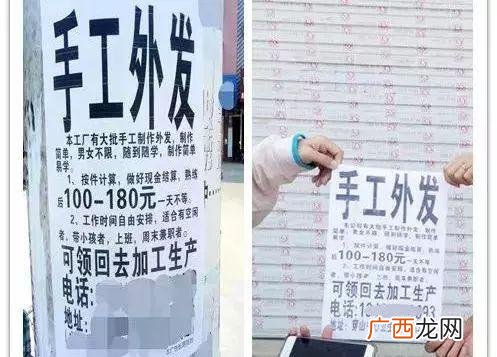 手工外发
本工厂有大批手工制作外发，制作
简单，男女不限，随到随学，制作简单
易学。
1、按件计算，做好现金结算，熟练
后100-180元一天不等。
2、工作时间自由安排，适合有空闲
者，带小孩者，上班，周末兼职者。
可领回去加工生产
电话：
地址：
手工外发
本公司有大批手工制作外发，制作
简单，男女不限，随到随学，制作简单
易学
按件计算，做好现金结算，熟练
后100-180元一天不等。
2、工作时间自由安排，适合有空闲
者，带小孩者，上班，周末兼职者。
可领回去加工生产
电话：13 393
地址：
广西龙网